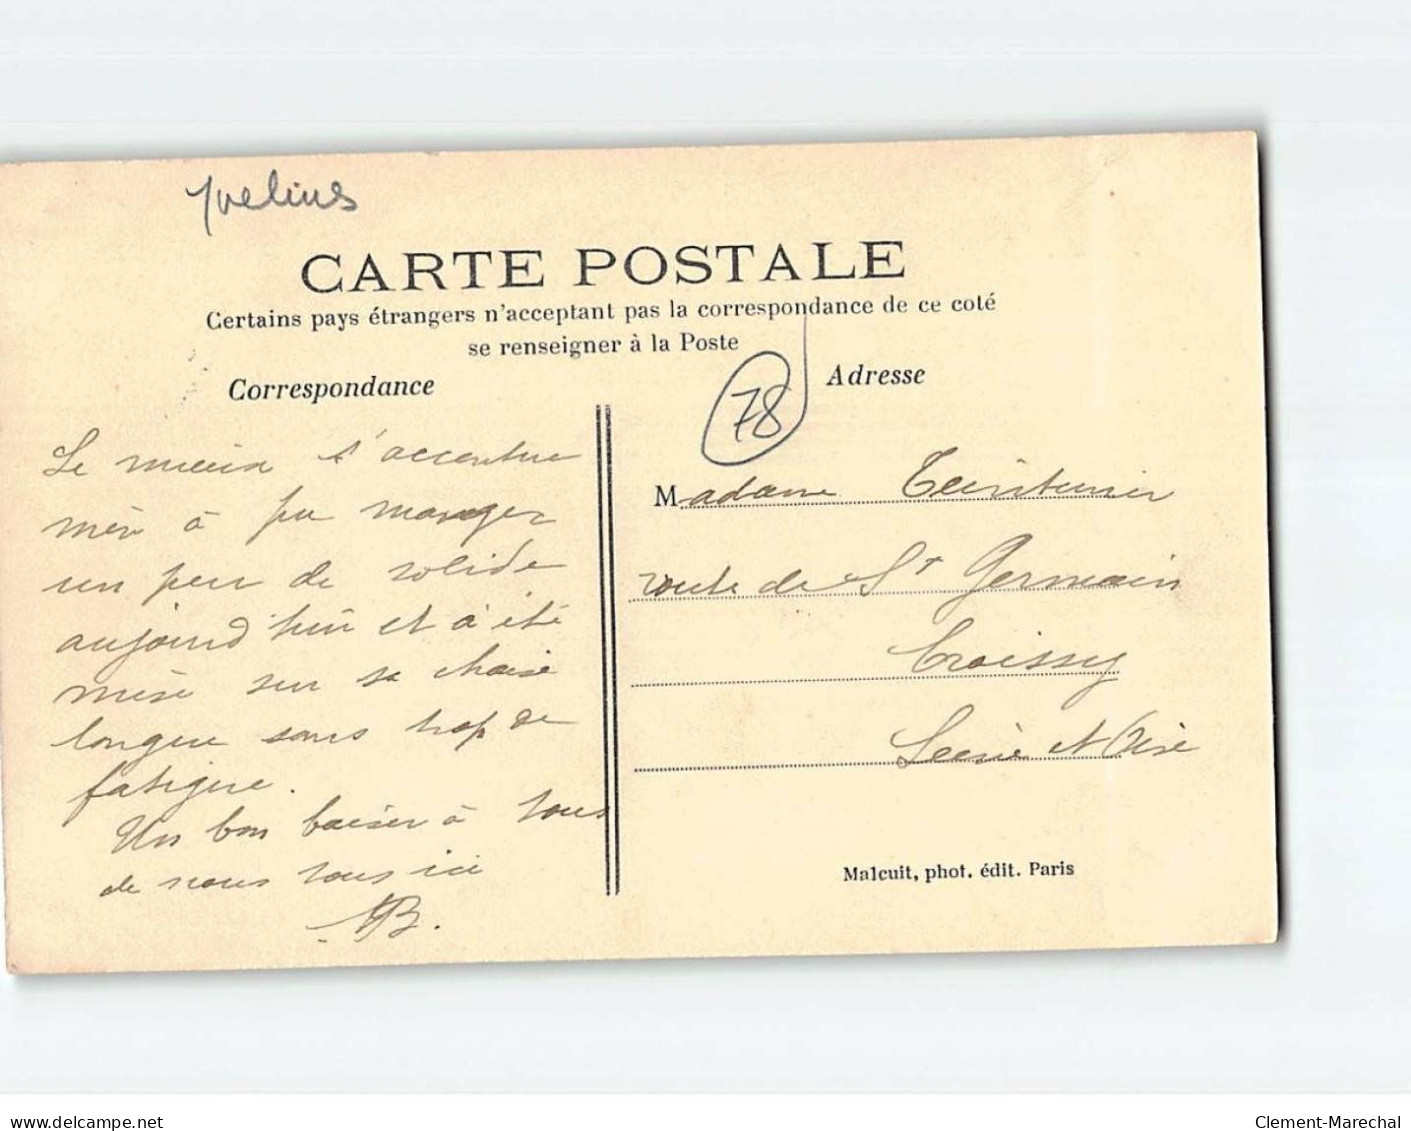 Yvelines
CARTE POSTALE
Certains pays étrangers n'acceptent pas la correspondance de ce coté
se renseigner à la Poste
Correspondance
Adresse
78
Le mieux s'accentue
mère à pu manger
un peu de solide
aujourd'hui et à été
mise sur sa chaise
longue sans trop de
fatigue.
Un bon baiser à tous
de nous tous ici
AB.
Madame Teinturier
route de St Germain
Croissy
Seine et Oise
Malcuit, phot. édit. Paris
www.delcampe.net
Clement-Marechal